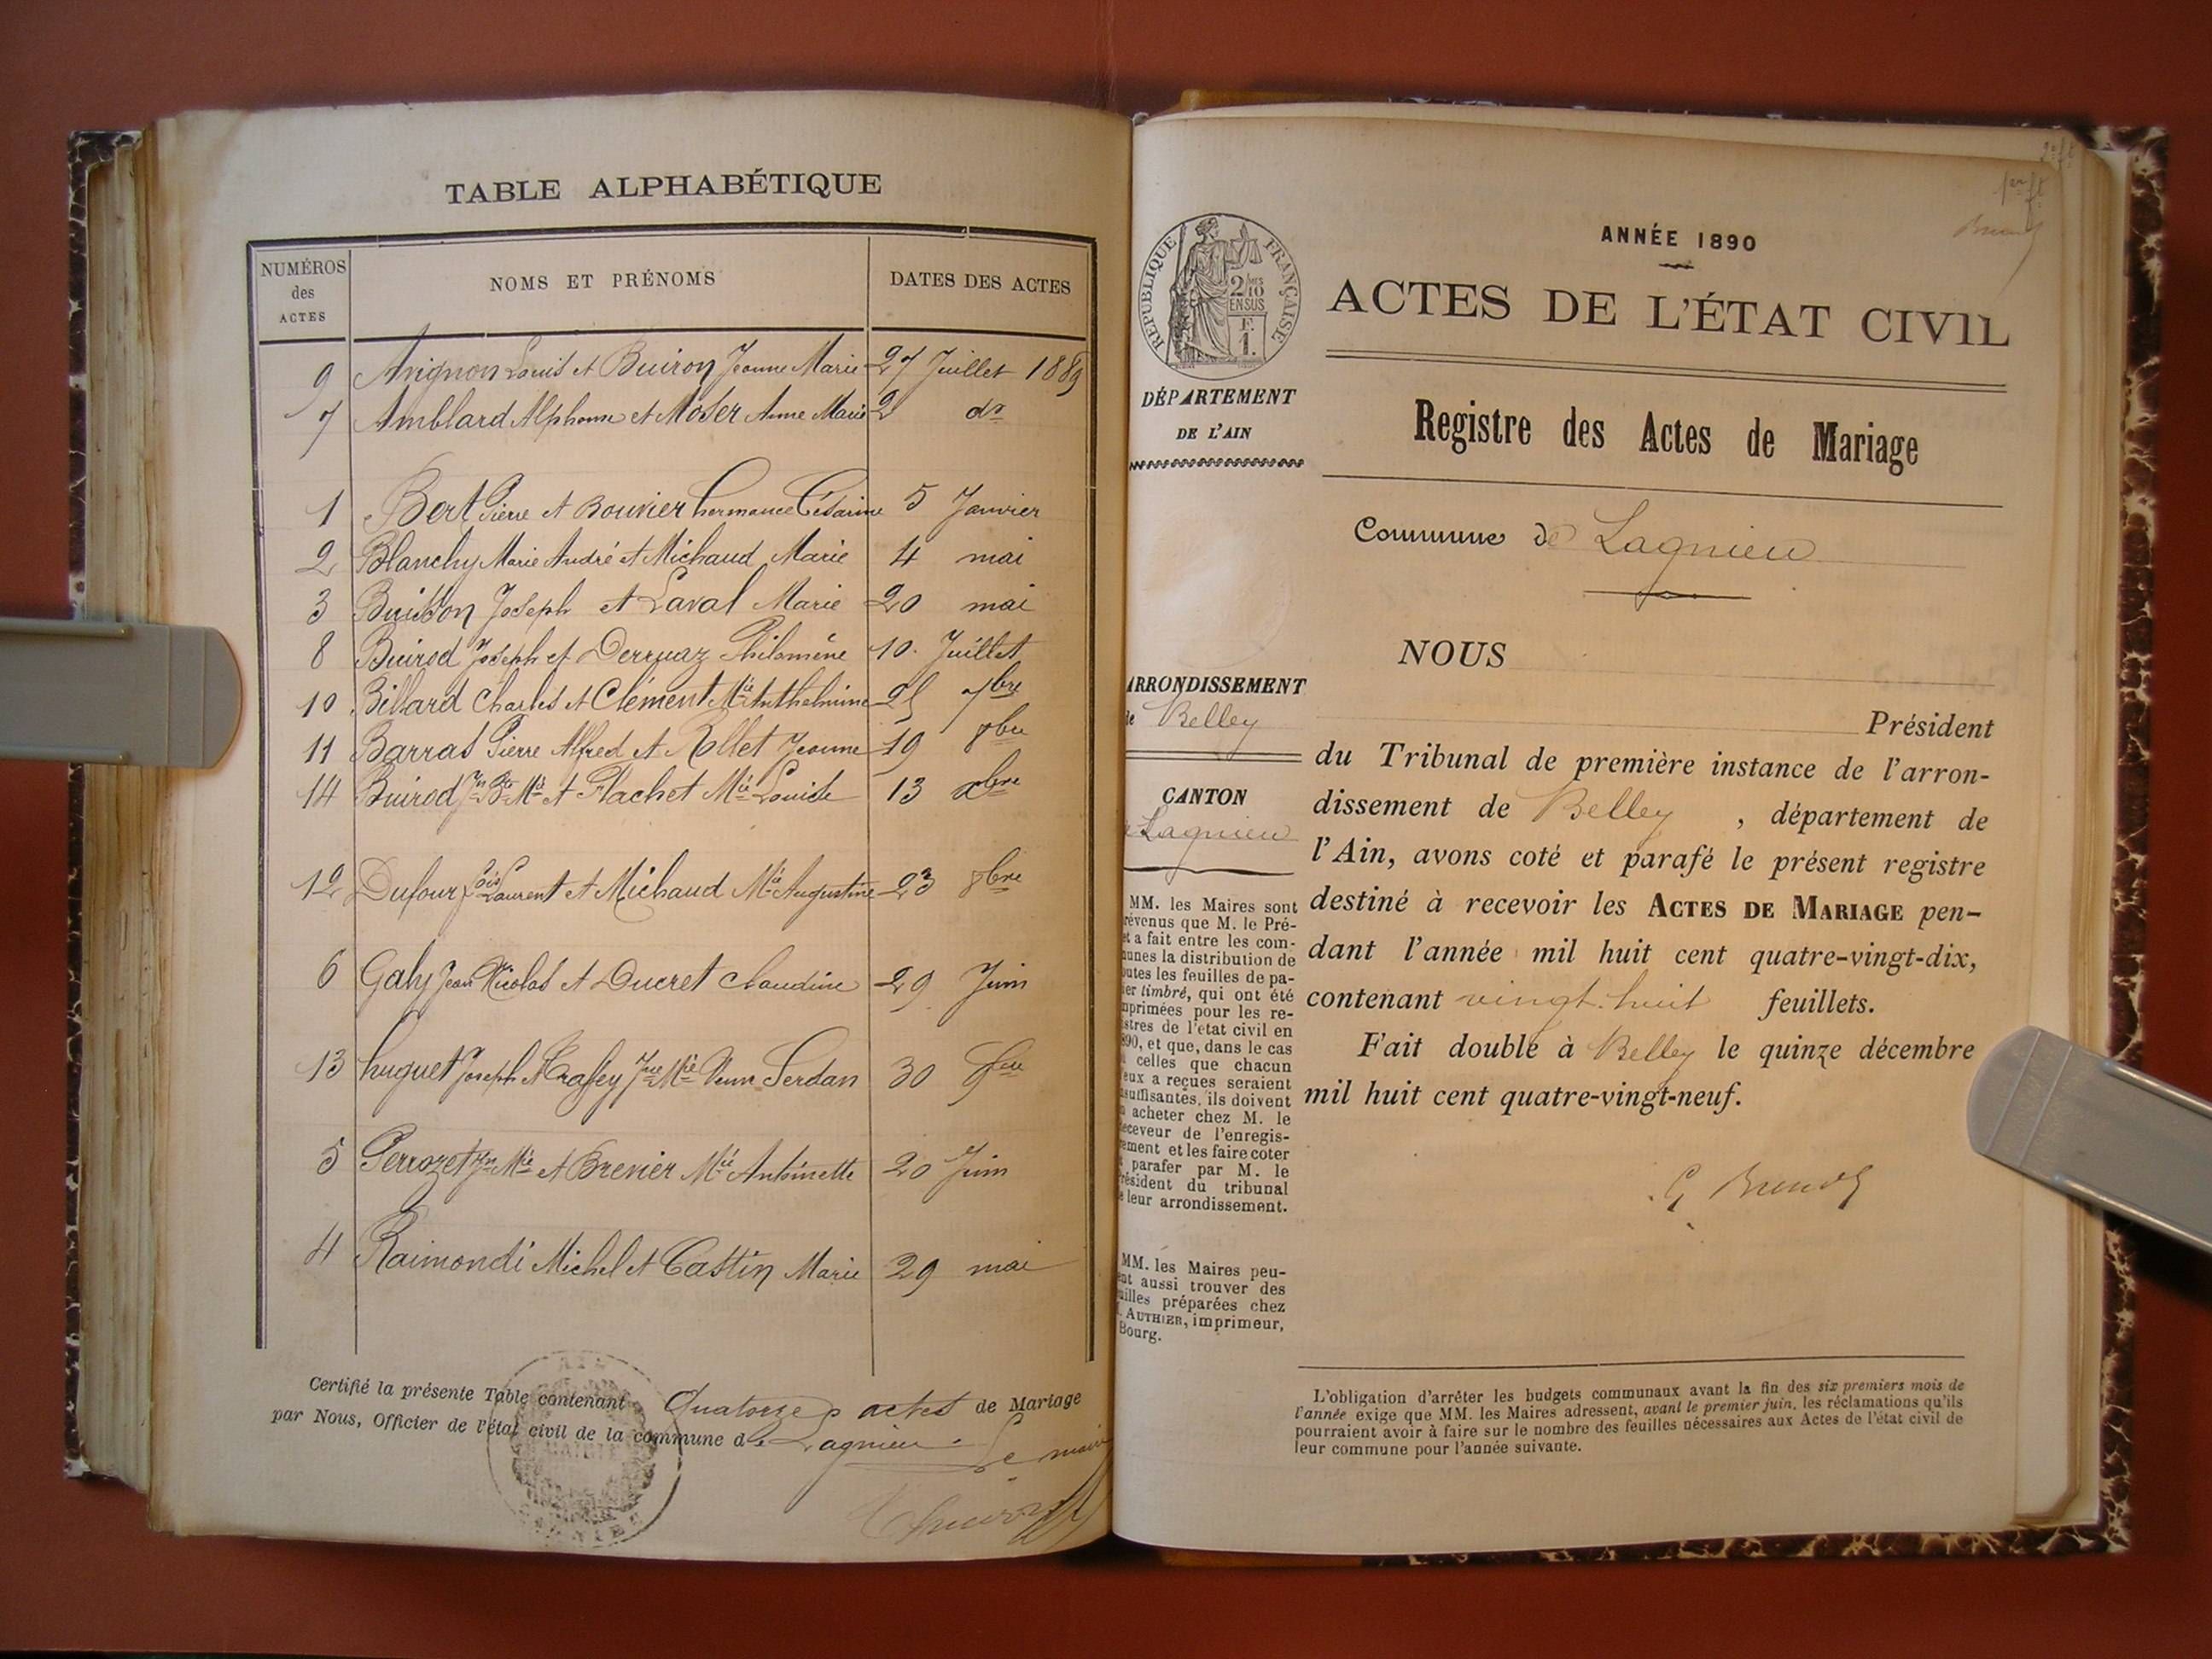 TABLE ALPHABÉTIQUE
NUMÉROS des ACTES
NOMS ET PRÉNOMS
DATES DES ACTES
9 Avignon Louis et Buiron Jeanne Marie 27 Juillet 1889
7 Amblard Alphonse et Moser Anne Marie 2 do
1 Bert Pierre et Bouvier hermance Césarine 5 Janvier
2 Blanchy Marie André et Michaud Marie 4 mai
3 Buisson Joseph et Laval Marie 20 mai
8 Buirod Joseph et Derruaz Philomène 10 Juillet
10 Billard Charles et Clément Mie Anthelmine 25 7bre
11 Barras Pierre Alfred et Rollet Jeanne 19 8bre
14 Buirod Jn Bte Mie et Flachet Mie Louise 13 xbre
12 Dufour fcois Laurent et Michaud Mie Augustine 23 8bre
6 Galy Jean Nicolas et Ducret Claudine 29 Juin
13 huguet Joseph et Jne Mie Veuve Serdan 30
5 Perrozet Jn Mie et Brevier Mie Antoinette 20 Juin
4 Raimondi Michel et Castin Marie 29 mai
Certifié la présente Table contenant Quatorze actes de Mariage
par Nous, Officier de l'état civil de la commune de Lagnieu.
Le maire
1er ft
ANNÉE 1890
RÉPUBLIQUE FRANÇAISE
2/10
EN SUS
F.
1.
ACTES DE L'ÉTAT CIVIL
DÉPARTEMENT
DE L'AIN
Registre des Actes de Mariage
Commune de Lagnieu
NOUS
ARRONDISSEMENT
de Belley
Président
du Tribunal de première instance de l'arron-
dissement de Belley, département de
l'Ain, avons coté et parafé le présent registre
destiné à recevoir les ACTES DE MARIAGE pen-
dant l'année mil huit cent quatre-vingt-dix,
contenant vingt-huit feuillets.
Fait double à Belley le quinze décembre
mil huit cent quatre-vingt-neuf.
CANTON
Lagnieu
MM. les Maires sont
révenus que M. le Pré-
et a fait entre les com-
unes la distribution de
outes les feuilles de pa-
ier timbré, qui ont été
mprimées pour les re-
istres de l'état civil en
890, et que, dans le cas
celles que chacun
eux a reçues seraient
nsuffisantes, ils doivent
acheter chez M. le
eceveur de l'enregis-
rement et les faire coter
t parafer par M. le
résident du tribunal
e leur arrondissement.
MM. les Maires peu-
ent aussi trouver des
uilles préparées chez
M. AUTHIER, imprimeur,
Bourg.
L'obligation d'arrêter les budgets communaux avant la fin des six premiers mois de
l'année exige que MM. les Maires adressent, avant le premier juin, les réclamations qu'ils
pourraient avoir à faire sur le nombre des feuilles nécessaires aux Actes de l'état civil de
leur commune pour l'année suivante.